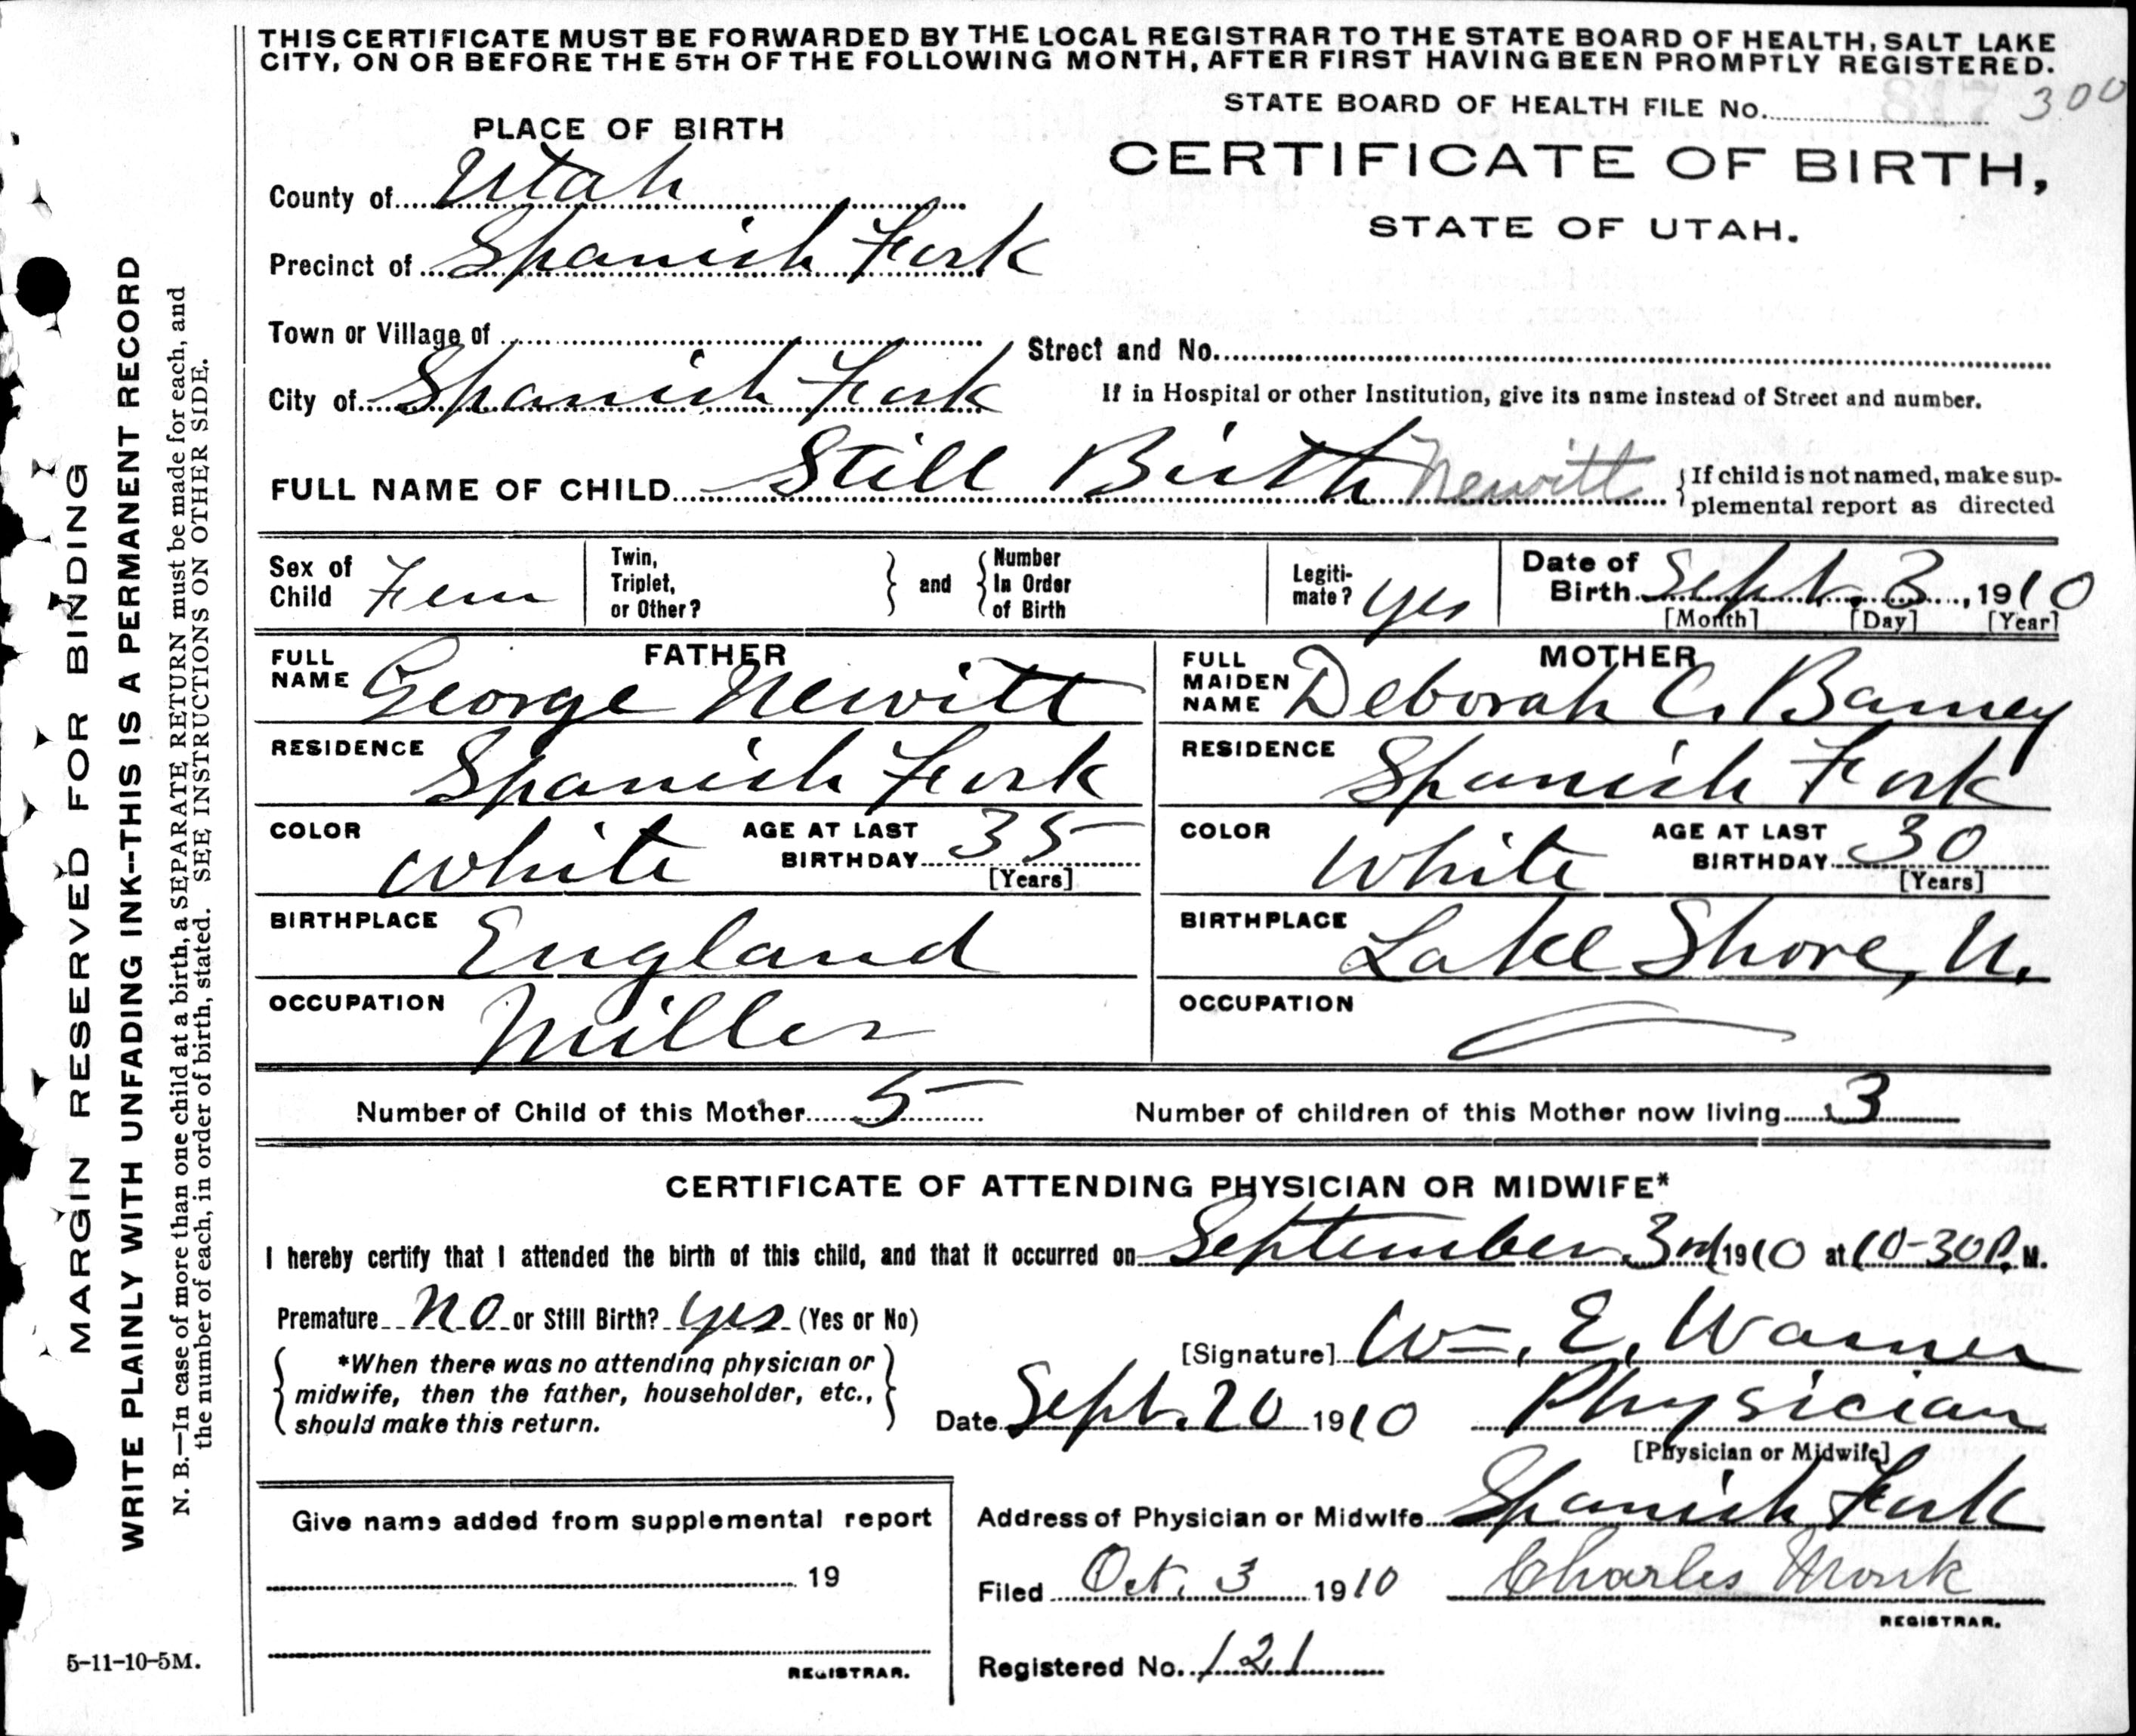 THIS CERTIFICATE MUST BE FORWARDED BY THE LOCAL REGISTRAR TO THE STATE BOARD OF HEALTH, SALT LAKE
CITY, ON OR BEFORE THE 5TH OF THE FOLLOWING MONTH, AFTER FIRST HAVING BEEN PROMPTLY REGISTERED.
STATE BOARD OF HEALTH FILE No. 300
PLACE OF BIRTH
CERTIFICATE OF BIRTH,
STATE OF UTAH.
County of Utah
Precinct of Spanish Fork
Town or Village of
Street and No.
City of Spanish Fork
If in Hospital or other Institution, give its name instead of Street and number.
FULL NAME OF CHILD Still Birth Newitt
If child is not named, make sup-
plemental report as directed
Sex of Child Fem
Twin, Triplet, or Other?
and
Number In Order of Birth
Legiti-mate? yes
Date of Birth Sept. 3, 1910
[Month] [Day] [Year]
FATHER
FULL NAME George Newitt
RESIDENCE Spanish Fork
COLOR White AGE AT LAST BIRTHDAY 35
[Years]
BIRTHPLACE England
OCCUPATION Miller
MOTHER
FULL MAIDEN NAME Deborah C. Barney
RESIDENCE Spanish Fork
COLOR White AGE AT LAST BIRTHDAY 30
[Years]
BIRTHPLACE Lake Shore, U.
OCCUPATION
Number of Child of this Mother 5 Number of children of this Mother now living 3
CERTIFICATE OF ATTENDING PHYSICIAN OR MIDWIFE*
I hereby certify that I attended the birth of this child, and that it occurred on September 3rd 1910 at 10-30 P. M.
Premature No or Still Birth? yes (Yes or No)
*When there was no attending physician or
midwife, then the father, householder, etc.,
should make this return.
[Signature] Wm. E. Warner
Date Sept. 20 1910 Physician
[Physician or Midwife]
Address of Physician or Midwife Spanish Fork
Filed Oct. 3 1910 Charles Monk
REGISTRAR.
Registered No. 121
Give name added from supplemental report
19
REGISTRAR.
MARGIN RESERVED FOR BINDING
WRITE PLAINLY WITH UNFADING INK--THIS IS A PERMANENT RECORD
N. B.—In case of more than one child at a birth, a SEPARATE RETURN must be made for each, and
the number of each, in order of birth, stated. SEE INSTRUCTIONS ON OTHER SIDE.
5-11-10-5M.